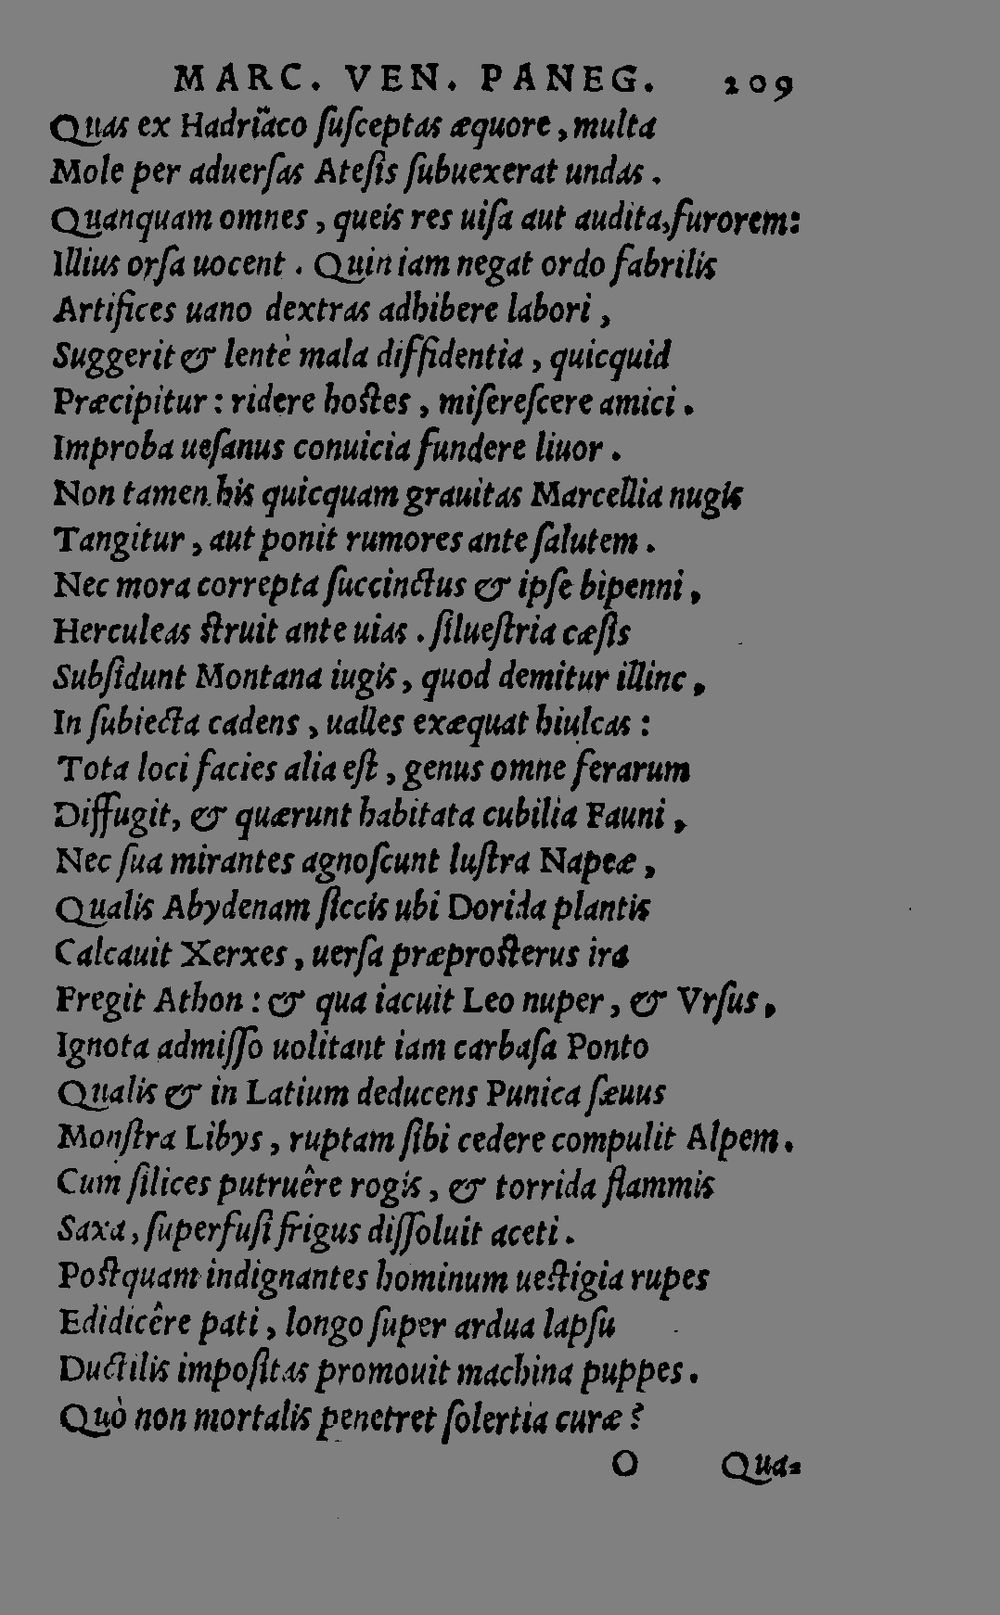 MARC. VEN. PANEG. 209
Quas ex Hadrïaco ſuſceptas æquore, multa
Mole per aduerſas Ateſis ſubuexerat undas.
Quanquam omnes, queis res uiſa aut audita, furorem:
Illius orſa uocent. Quin iam negat ordo fabrilis
Artifices uano dextras adhibere labori,
Suggerit & lentè mala diffidentia, quicquid
Præcipitur: ridere hostes, miſereſcere amici.
Improba ueſanus conuicia fundere liuor.
Non tamen his quicquam grauitas Marcellia nugis
Tangitur, aut ponit rumores ante ſalutem.
Nec mora correpta ſuccinctus & ipſe bipenni,
Herculeas struit ante uias. ſilueſtria cæſis
Subſidunt Montana iugis, quod demitur illinc,
In ſubiecta cadens, ualles exæquat hiulcas:
Tota loci facies alia eſt, genus omne ferarum
Diffugit, & quærunt habitata cubilia Fauni,
Nec ſua mirantes agnoſcunt luſtra Napeæ,
Qualis Abydenam ſiccis ubi Dorida plantis
Calcauit Xerxes, uerſa præprosterus ira
Fregit Athon: & qua iacuit Leo nuper, & Vrſus,
Ignota admiſſo uolitant iam carbaſa Ponto
Qualis & in Latium deducens Punica ſæuus
Monſtra Libys, ruptam ſibi cedere compulit Alpem.
Cum ſilices putruêre rogis, & torrida flammis
Saxa, ſuperfuſi frigus diſſoluit aceti.
Postquam indignantes hominum uestigia rupes
Edidicêre pati, longo ſuper ardua lapſu
Ductilis impoſitas promouit machina puppes.
Quò non mortalis penetret ſolertia curæ?
O Qua-